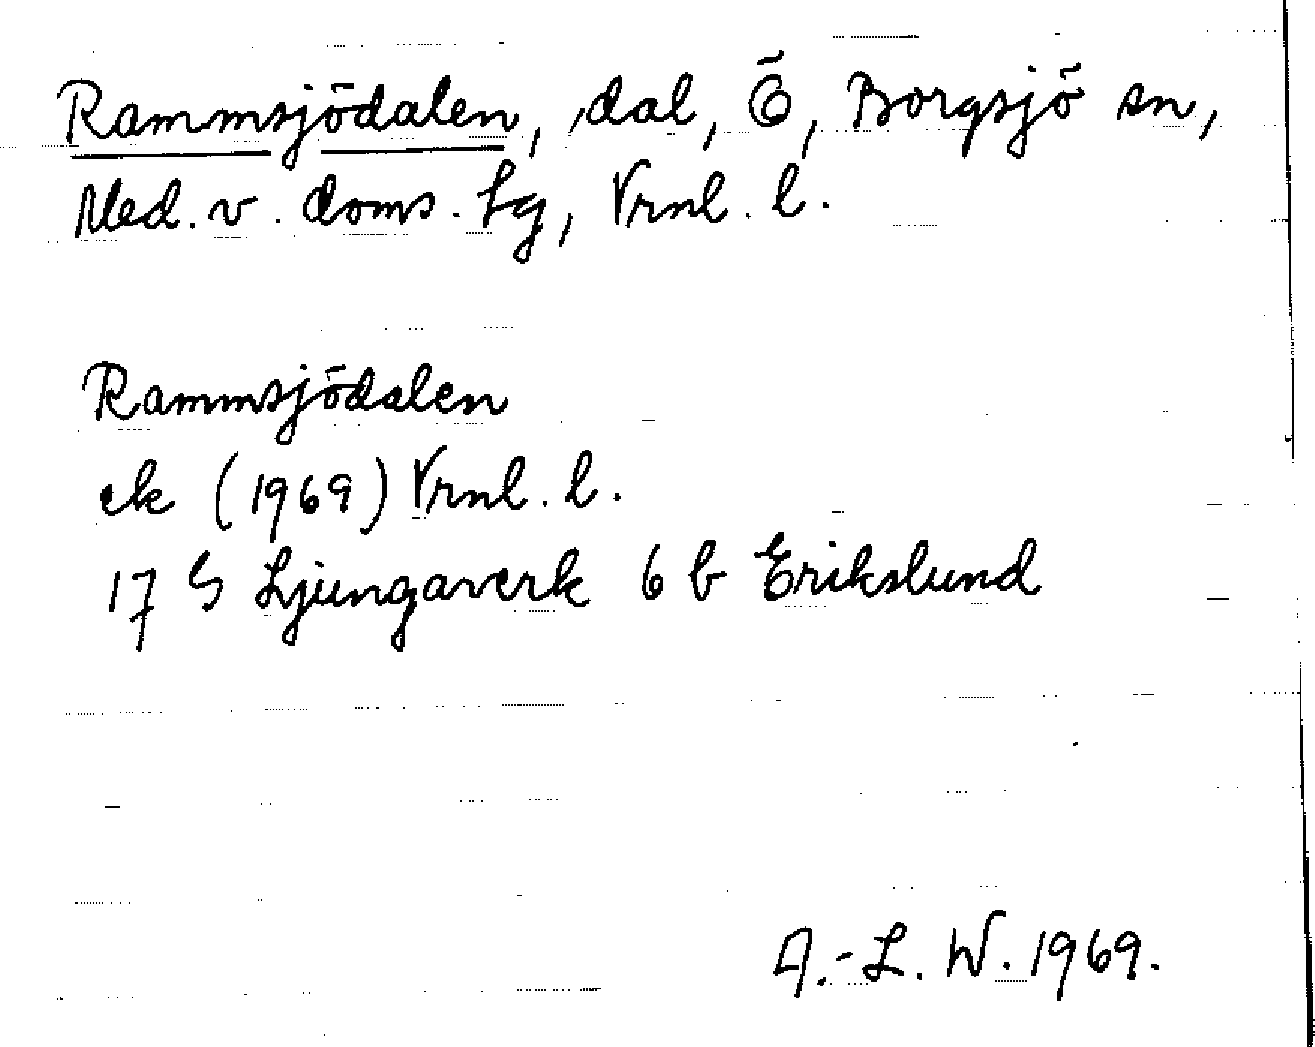 Rammsjödalen, dal, Ö, Borgsjö sn,
Med. v. doms. lg, Vrnl. l.
Rammsjödalen
ek (1969) Vrnl. l.
17 G Ljungaverk 6 b Erikslund
A.-L. W. 1969.